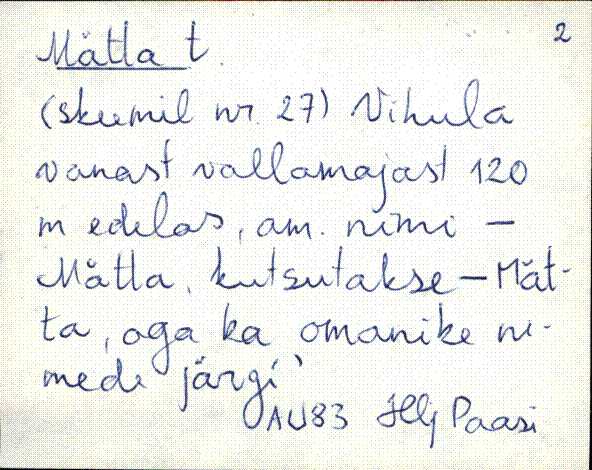 2
Mätla t.
(skeemil nr. 27) Vihula
vanast vallamajast 120
m edelas, am. nimi –
Mätla, kutsutakse – Mät-
ta, aga ka omanike ni-
mede järgi
AU83 Hlj Paasi